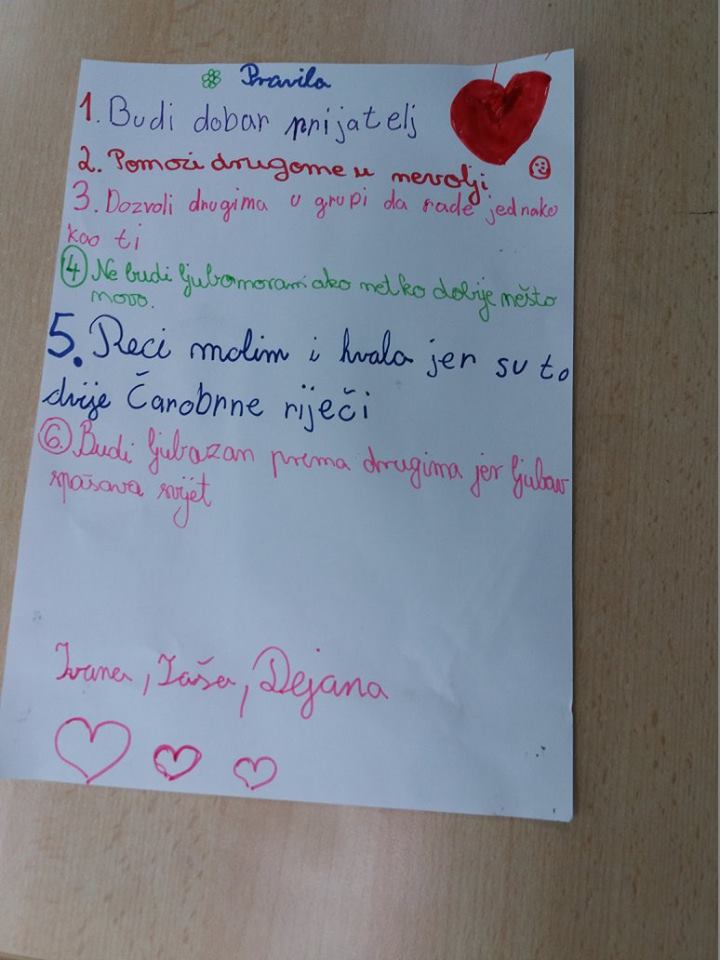 Pravila
1. Budi dobar prijatelj
2. Pomozi drugome u nevolji
3. Dozvoli drugima u grupi da rade jednako
kao ti
4 Ne budi ljubomoran ako netko dobije nešto
novo.
5. Reci molim i hvala jer su to
dvije Čarobne riječi
6. Budi ljubazan prema drugima jer ljubav
spašava svijet
Ivana, Taša, Dejana